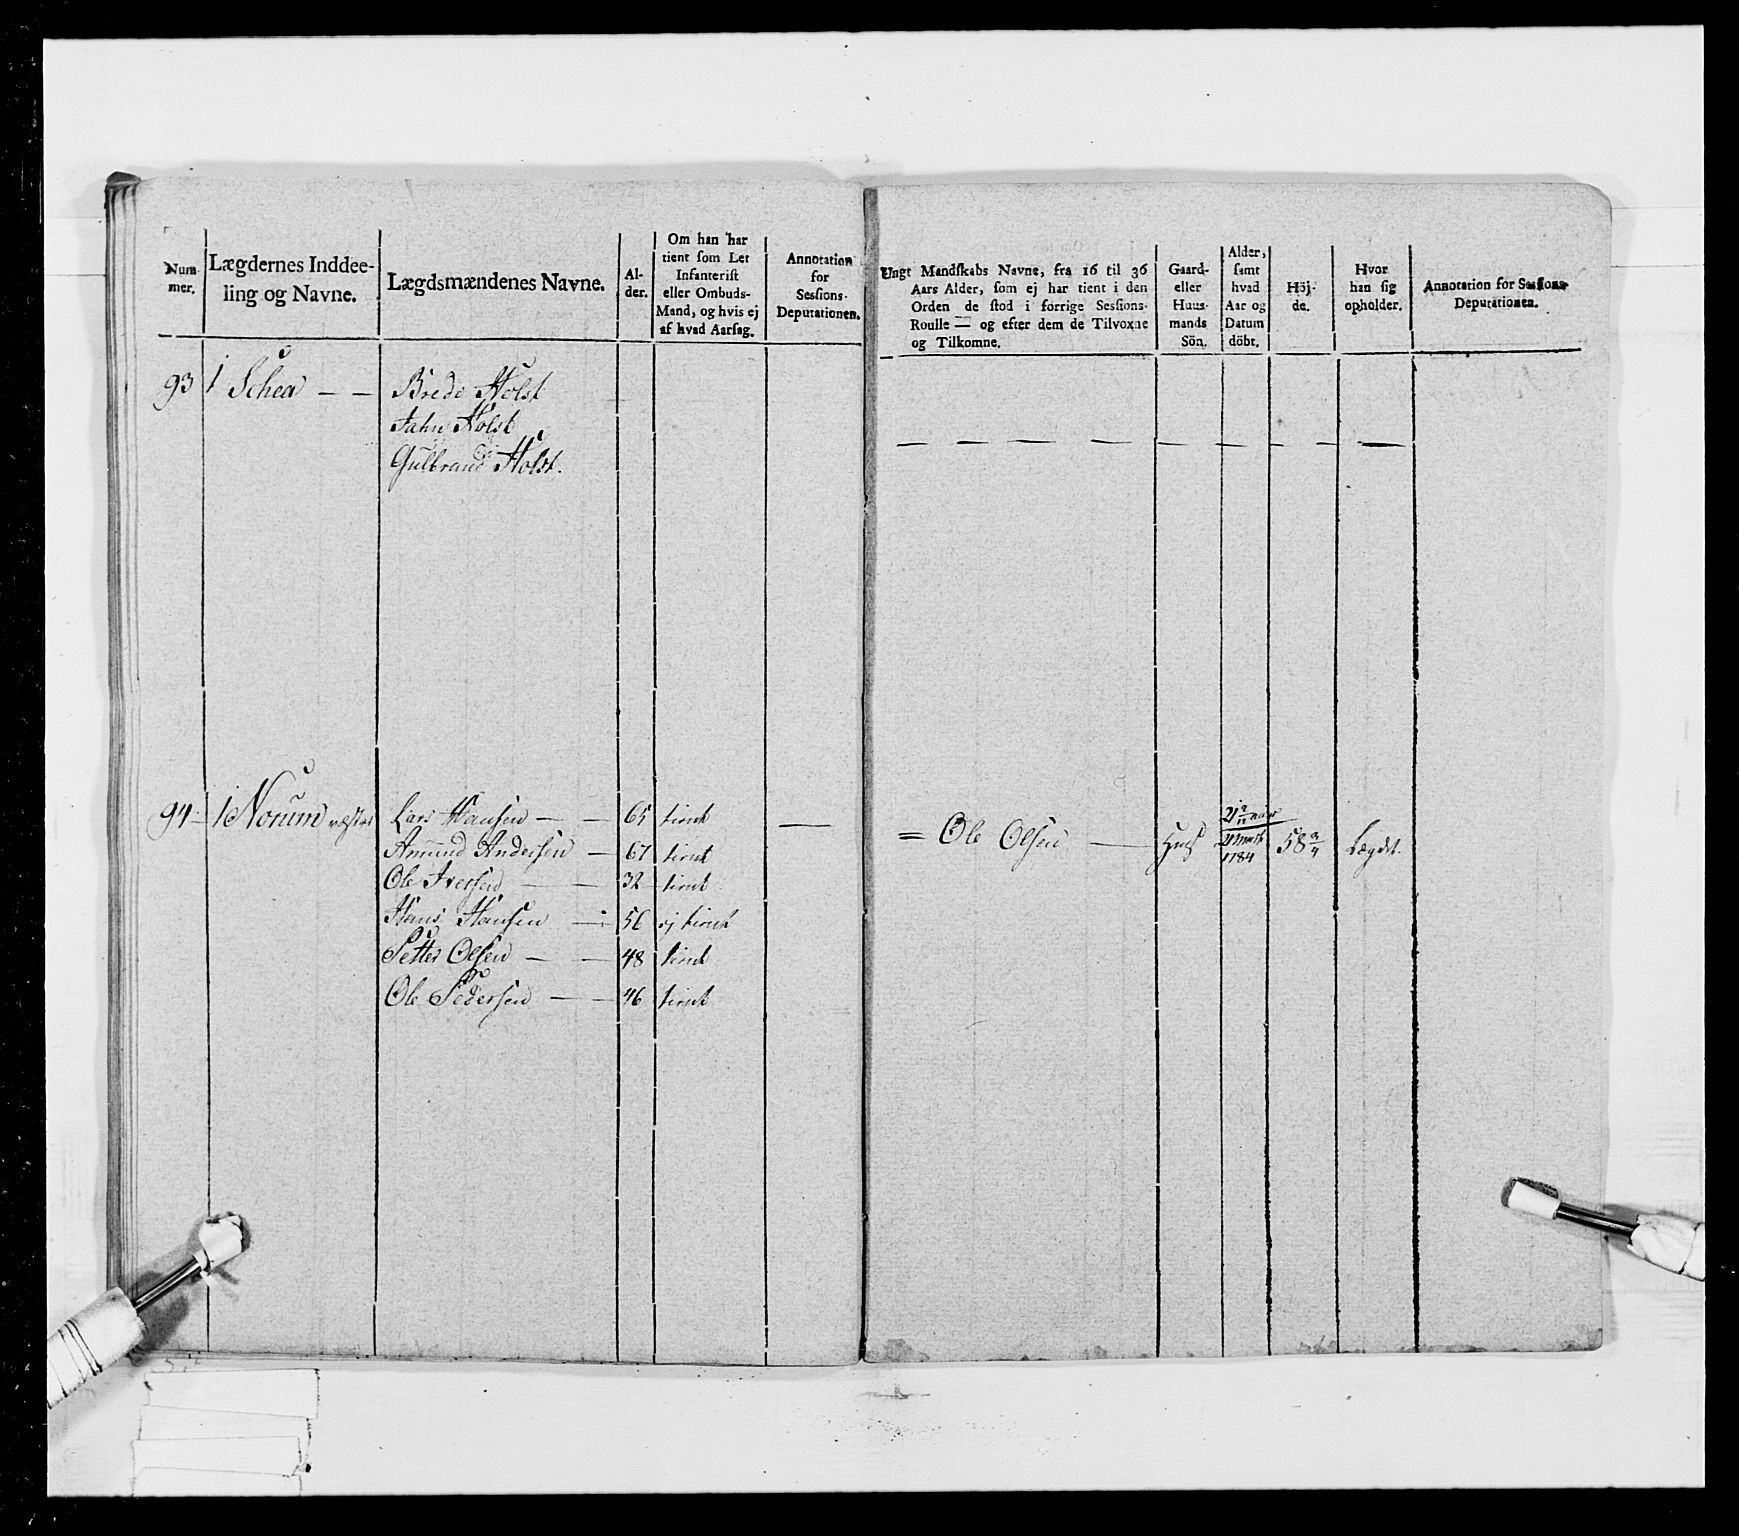 Num-
mer.
Lægdernes Inddee-
ling og Navne.
Lægdsmændenes Navne.
Al-
der.
Om han har
tient som Let
Infanterist
eller Ombuds-
Mand, og hvis ej
af hvad Aarsag.
Annotation
for
Sessions-
Deputationen.
Ungt Mandskabs Navne, fra 16 til 36
Aars Alder, som ej har tient i den
Orden de stod i forrige Sessions-
Roulle — og efter dem de Tilvoxne
og Tilkomne.
Gaard-
eller
Huus-
mands
Sön.
Alder,
samt
hvad
Aar og
Datum
döbt.
Höj-
de.
Hvor
han sig
opholder.
Annotation for Sessions-
Deputationen.
93 1 Schea — — Brede Holst
Jahn Holst
Gulbrand Holst.
94 1 Norum Lars Hansen — — 65 tient
Amund Andersen — 67 tient
Ole Iversen — — 32 tient
Hans Hansen — 56 ej tient
Petter Olsen — — 48 tient
Ole Pedersen — — 46 tient
= Ole Olsen — Huus 1784 58 3/4 Lægdet.